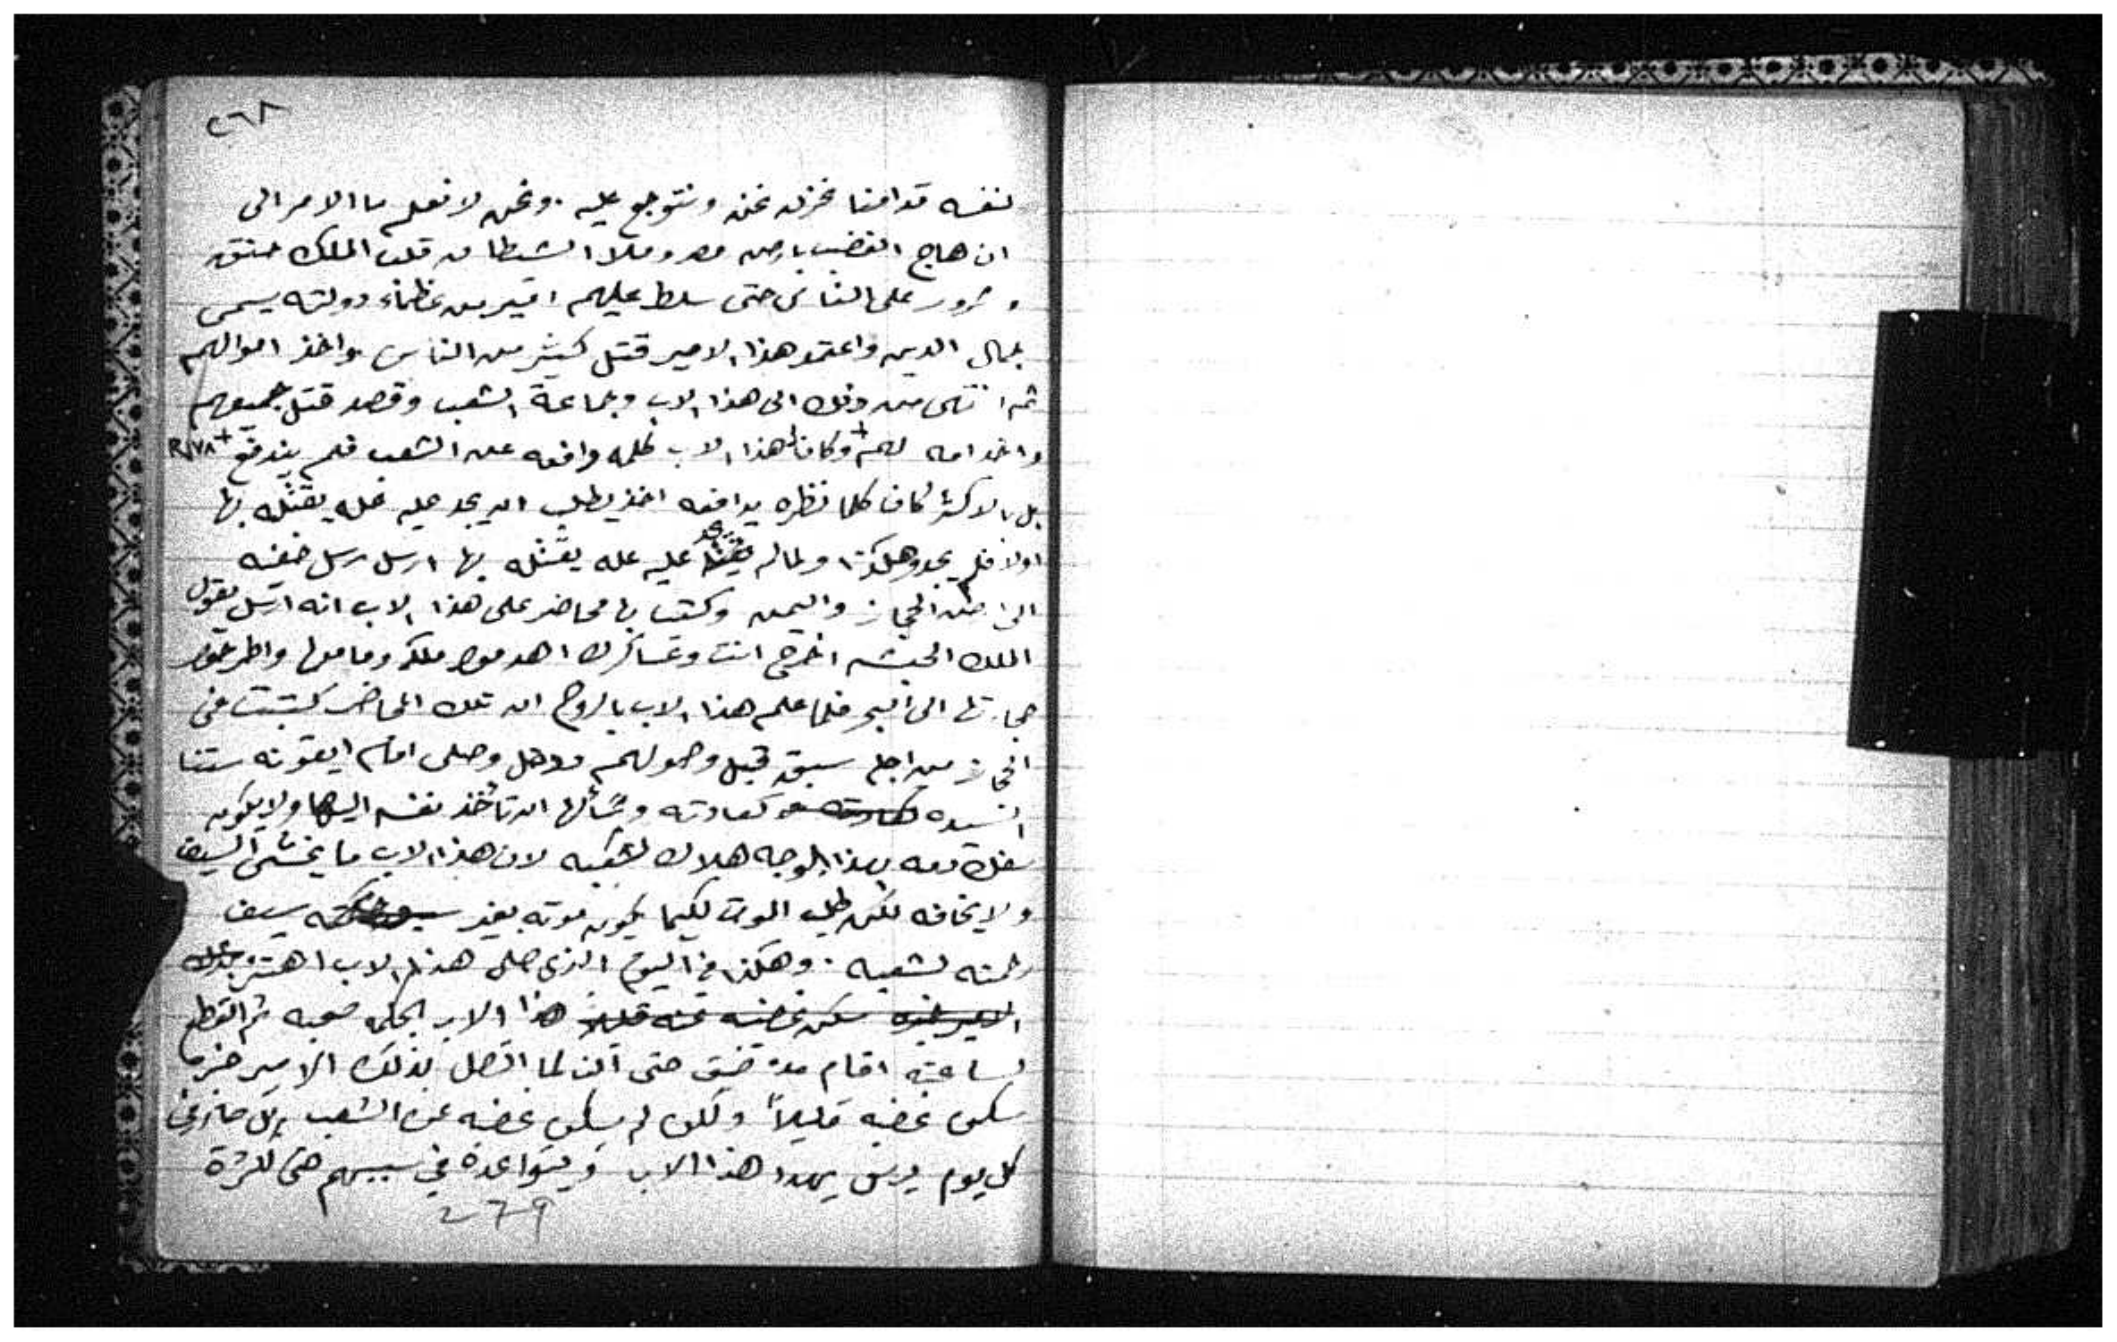 ٢٦٨
نفسه قدامنا نحزن نحن ونتوجع عليه. ونحن لا نعلم ما الامر الى
ان هاج الغضب بارض مصر وملا الشيطان قلب الملك حنق
وشرور على الناس حتى سلط عليهم امير من عظماء دولته يسمى
جمال الدين واعتمد هذا الامير قتل كثير من الناس واخذ اموالهم
ثم انتهى من ذلك الى هذا الاب وجماعة الشعب وقصد قتل جميعهم
لهم + وكان هذا الاب كلمه وافعه عن الشعب فلم يندفع +
بل بالاكثر كان كلما نظره يدافعه اخذ يطلب ان يجد عليه عله يقتله بها
اولا فلم يجد وهكذا ولما لم يجد عليه عله يقتله بها ارسل رسل خفيه
الى ارض الحجاز واليمن وكتب بها محاضر على هذا الاب انه ارسل يقول
الملك الحبشه اخرج انت وعساكرك اهدموا مكه وما فيها واطرحوا
حجارتها الى البحر فلما علم هذا الاب بالروح ان تلك المحاضر كتبت في
الحجاز من اجله سبق قبل وصولهم ودخل وصلى امام ايقونة ستنا
السيده كعادته وسألها ان تأخذ نفسه اليها ولا يكون
سفك دمه بهذا الوجه هلاك لشعبه لان هذا الاب ما يخشى السيف
ولا يخافه لكن طلب الموت لكيما يكون موته بغير سيف
رحمته لشعبه. وهكذا في اليوم الذي صلى هذا الاب
سكن غضبه عنه قليلا هذا الاب بحكمه صعبه ثم انقطع
لساعته اقام مدة ضيق حتى أن لما اتصل بذلك الامير خبره
سكن غضبه قليلاً ولكن لم يسكن غضبه عن الشعب بل
كل يوم يرسل يهدد هذا الاب ويتواعده في سببهم حتى لكثرة
٢٦٩